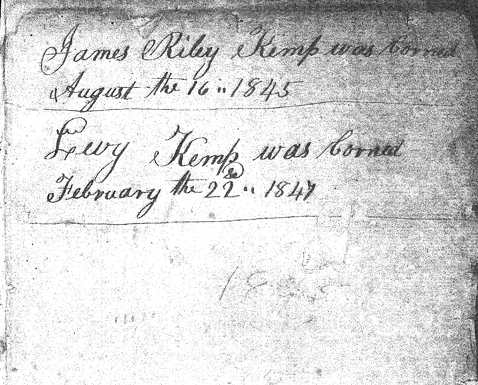 James Riley Kemp was borned
August the 16 " 1845
Levy Kemp was borned
February the 22 " 1847